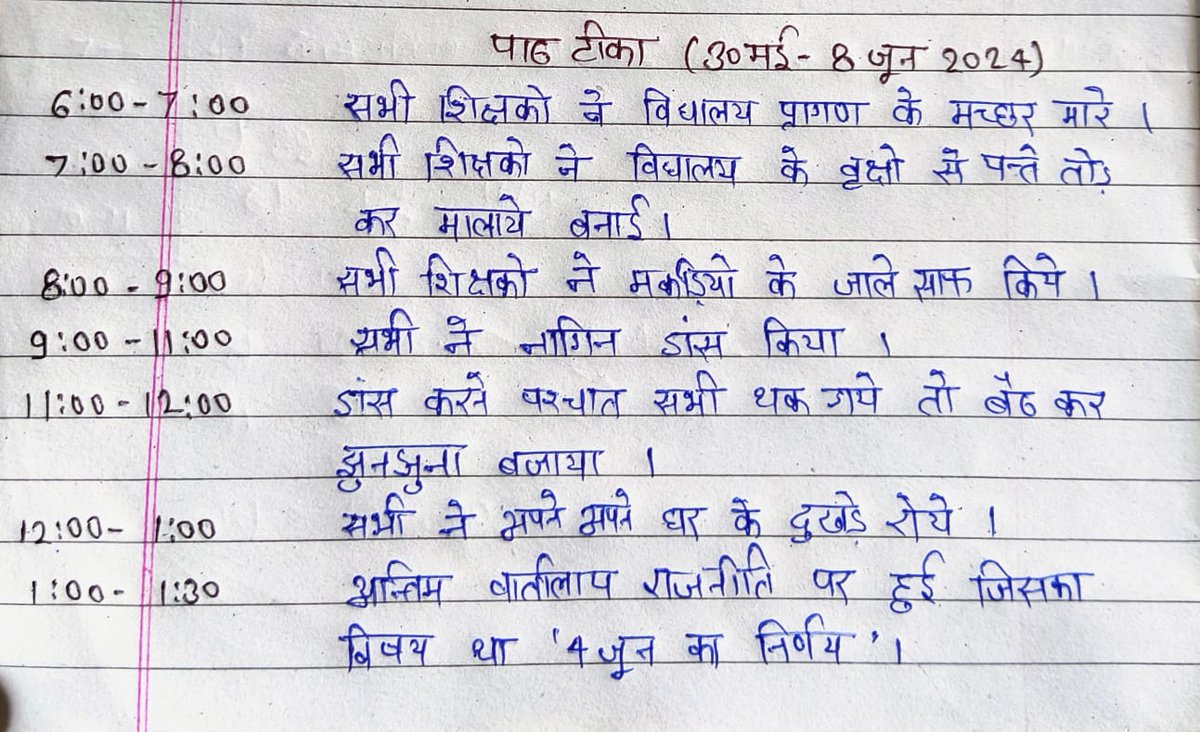 पाठ टीका (30 मई - 8 जून 2024)
6:00 - 7:00 सभी शिक्षको ने विद्यालय प्रागण के मच्छर मारे ।
7:00 - 8:00 सभी शिक्षको ने विद्यालय के वृक्षो से पत्ते तोड़
कर मालाये बनाई ।
8:00 - 9:00 सभी शिक्षको ने मकड़ियो के जाले साफ किये ।
9:00 - 11:00 सभी ने नागिन डांस किया ।
11:00 - 12:00 डांस करने पश्चात सभी थक गये तो बैठ कर
झुनझुना बजाया ।
12:00 - 1:00 सभी ने अपने अपने घर के दुखड़े रोये ।
1:00 - 1:30 अन्तिम वार्तालाप राजनीति पर हुई जिसका
विषय था '4 जून का निर्णय' ।